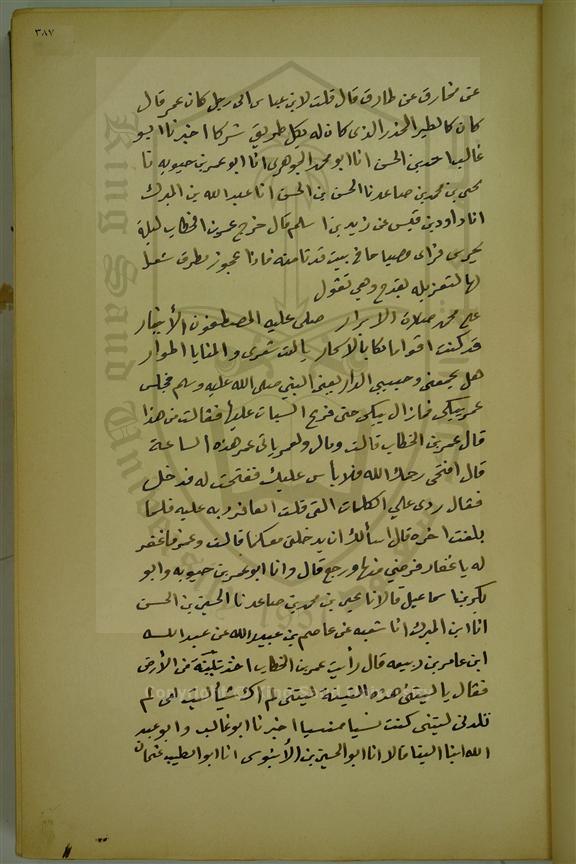 ٣٨٧
عن مخارق عن طارق قال قلت لابن عباس اي رجل كان عمر قال
كان كالطير الحذر الذي كان له بكل طريق شركا اخبرنا ابو
غالب احمد بن الحسن انا ابو محمد الجوهري انا ابو عمر بن حيويه نا
يحيى بن محمد بن صاعد نا الحسين بن الحسن انا عبد الله بن المبرك
انا داود بن قيس عن زيد بن اسلم قال خرج عمر بن الخطاب ليلة
يحرس فراى مصباحا في بيت فدنا منه فاذا عجوز تطرق شعرا
لها لتغزله بقدح وهي تقول
على محمد صلاة الابرار صلى عليه المصطفون الأخيار
قد كنت قواما بكا بالاسحار يا ليت شعري والمنايا اطوار
هل يجمعني وحبيبي الدار يعني النبي صلى الله عليه وسلم فجلس
عمر يبكي فما زال يبكي حتى قرع الباب عليها فقالت من هذا
قال عمر بن الخطاب قالت ومالي ولعمر ياتي عمر هذه الساعة
قال افتحي رحمك الله فلا بأس عليك ففتحت له فدخل
فقال ردي علي الكلمات التي قلت انفا فردته عليه فلما
بلغت اخره قال اسألك ان تدخلني معكما قالت وعمر فاغفر
له يا غفار فرضي منها ورجع قال وانا ابو عمر بن حيويه وابو
بكر بن اسماعيل قالا نا يحيى بن محمد بن صاعد نا الحسين بن الحسن
انا ابن المبرك انا شعبه عن عاصم بن عبيد الله عن عبد الله
ابن عامر بن ربيعه قال رأيت عمر بن الخطاب اخذ تبنة من الأرض
فقال يا ليتني هذه التبنة ليتني لم اك شيأ ليت امي لم
تلدني ليتني كنت نسيا منسيا اخبرنا ابو غالب وابو عبد
الله ابنا البنا قالا انا ابو الحسين بن الأبنوسي انا ابو الطيب عثمان